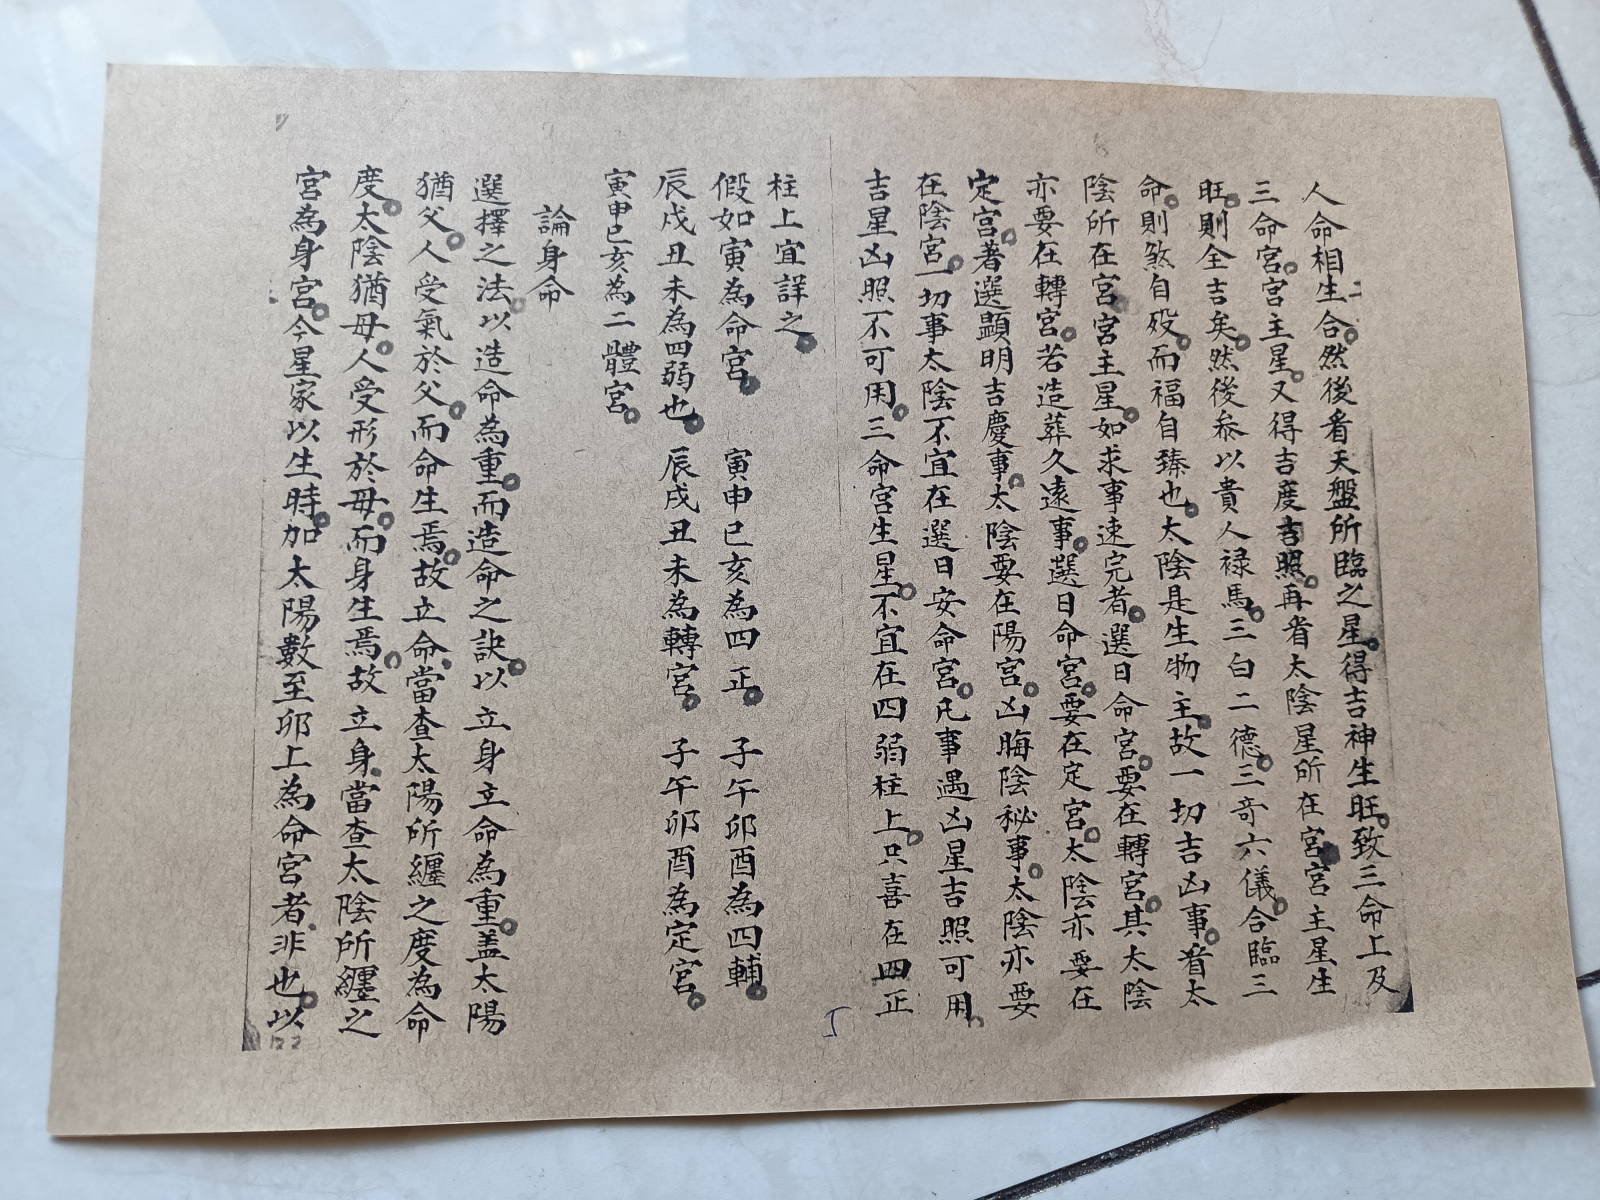 人命相生合。然後看天盤所臨之星。得吉神生旺。致三命上及
三命宮。宮主星。又得吉度吉照。再看太陰星所在宮。宮主星生
旺。則全吉矣。然後叅以貴人禄馬。三白二德。三奇六儀。合臨三
命。則煞自殁。而福自臻也。太陰是生物主。故一切吉凶事。看太
陰所在宮。宮主星。如求事速完者。選日命宮。要在轉宮。其太陰
亦要在轉宮。若造葬久遠事。選日命宮。要在定宮。太陰亦要在
定宮。著選顯明吉慶事。太陰要在陽宮。凶晦陰秘事。太陰亦要
在陰宮。一切事太陰不宜在選日安命宮。凡事遇凶星吉照可用。
吉星凶照不可用。三命宮生星。不宜在四弱柱上。只喜在四正
柱上宜詳之。
假如寅為命宮。 寅申巳亥為四正。 子午卯酉為四輔。
辰戌丑未為四弱也。 辰戌丑未為轉宮。 子午卯酉為定宮。
寅申巳亥為二體宮。
論身命
選擇之法。以造命為重。而造命之訣。以立身立命為重。盖太陽
猶父。人受氣於父。而命生焉。故立命、當查太陽所纏之度為命
度。太陰猶毋。人受形於毋。而身生焉。故立身、當查太陰所纏之
宮為身宮。今星家以生時。加太陽數至卯上為命宮者、非也。以